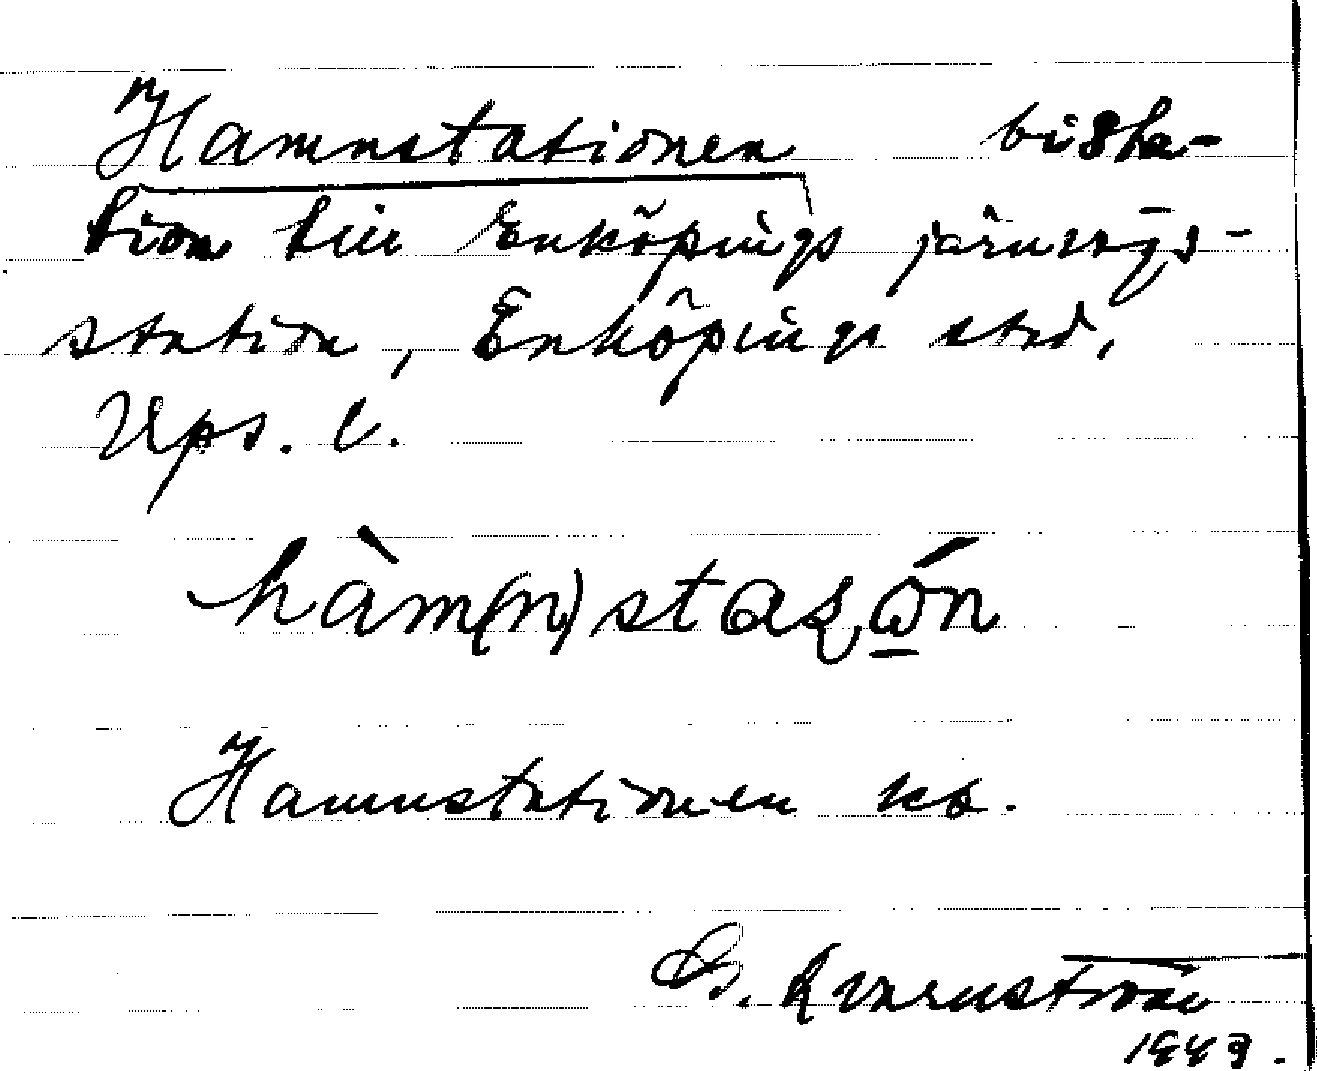 Hamnstationen bista-
tion till Enköpings järnvägs-
station, Enköpings stad,
Ups. l.
hàm(n)stasωń
Hamnstationen kb.
G. Kvarnström